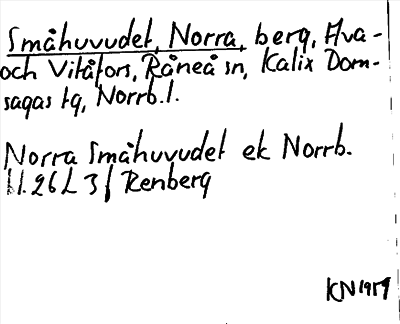 Småhuvudet, Norra, berg, Hva-
och Vitåfors, Råneå sn, Kalix Dom-
sagas tg, Norrb.l.
Norra Småhuvudet ek Norrb.
26 L 3 f Renberg